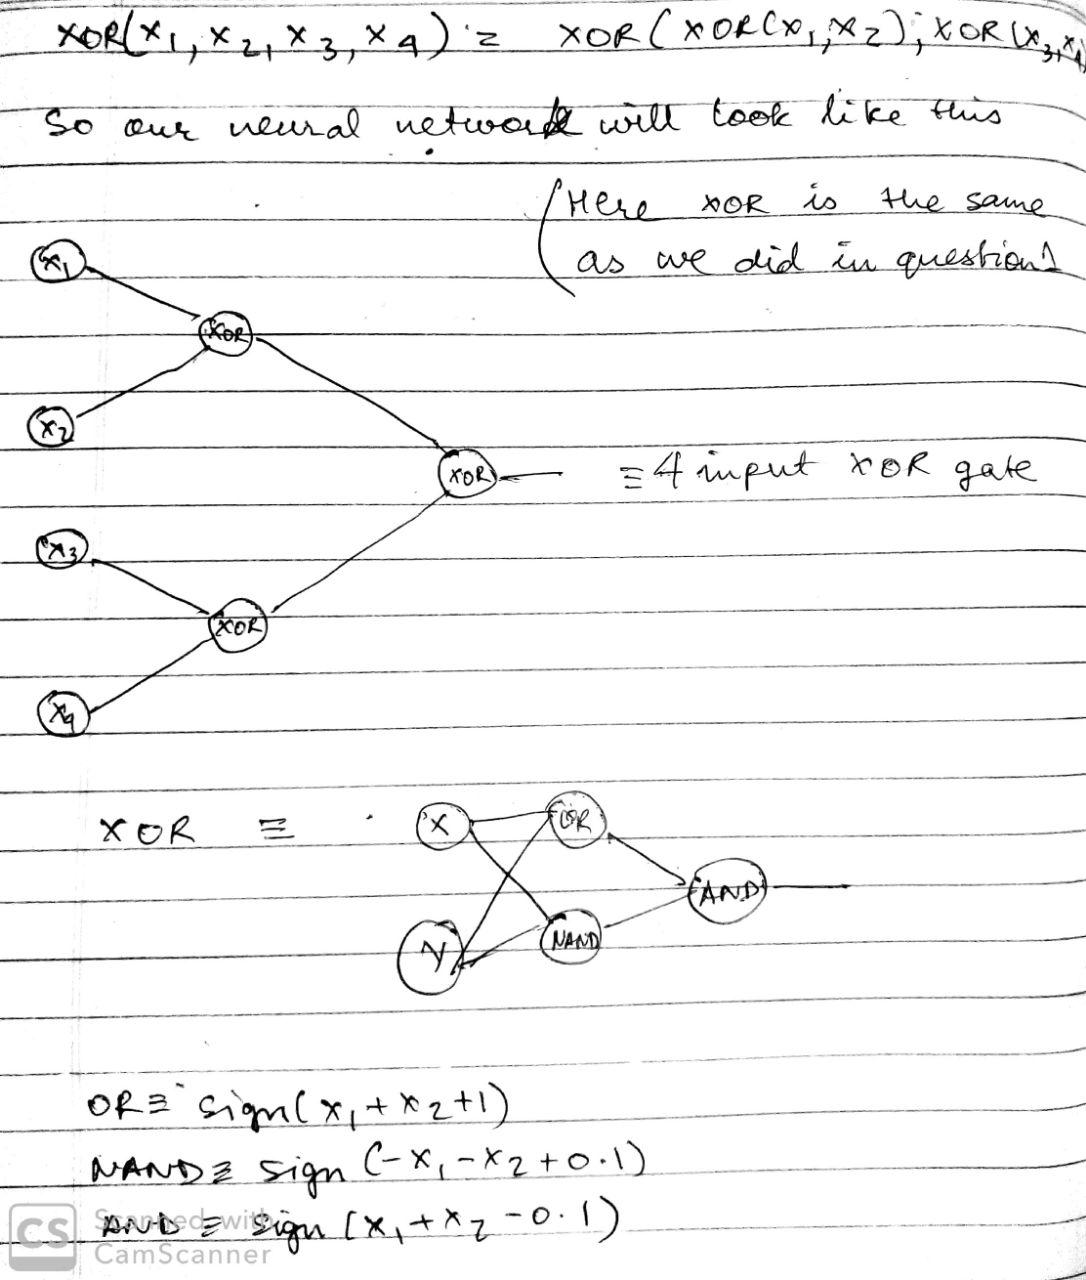 XOR(x1, x2, x3, x4) = XOR(XOR(x1, x2), XOR(x3, x4
So our neural network will look like this
(Here XOR is the same
as we did in question1
x1
XOR
x2
XOR
≡ 4 input XOR gate
x3
XOR
x4
XOR ≡
X
OR
AND
Y
NAND
OR ≡ sign(x1 + x2 + 1)
NAND ≡ sign (-x1 - x2 + 0.1)
AND ≡ sign (x1 + x2 - 0.1)
CS
Scanned with
CamScanner